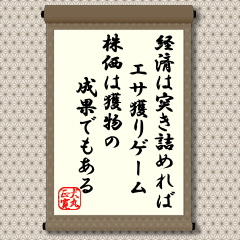 経済は突き詰めれば
エサ獲りゲーム
株価は獲物の
成果でもある